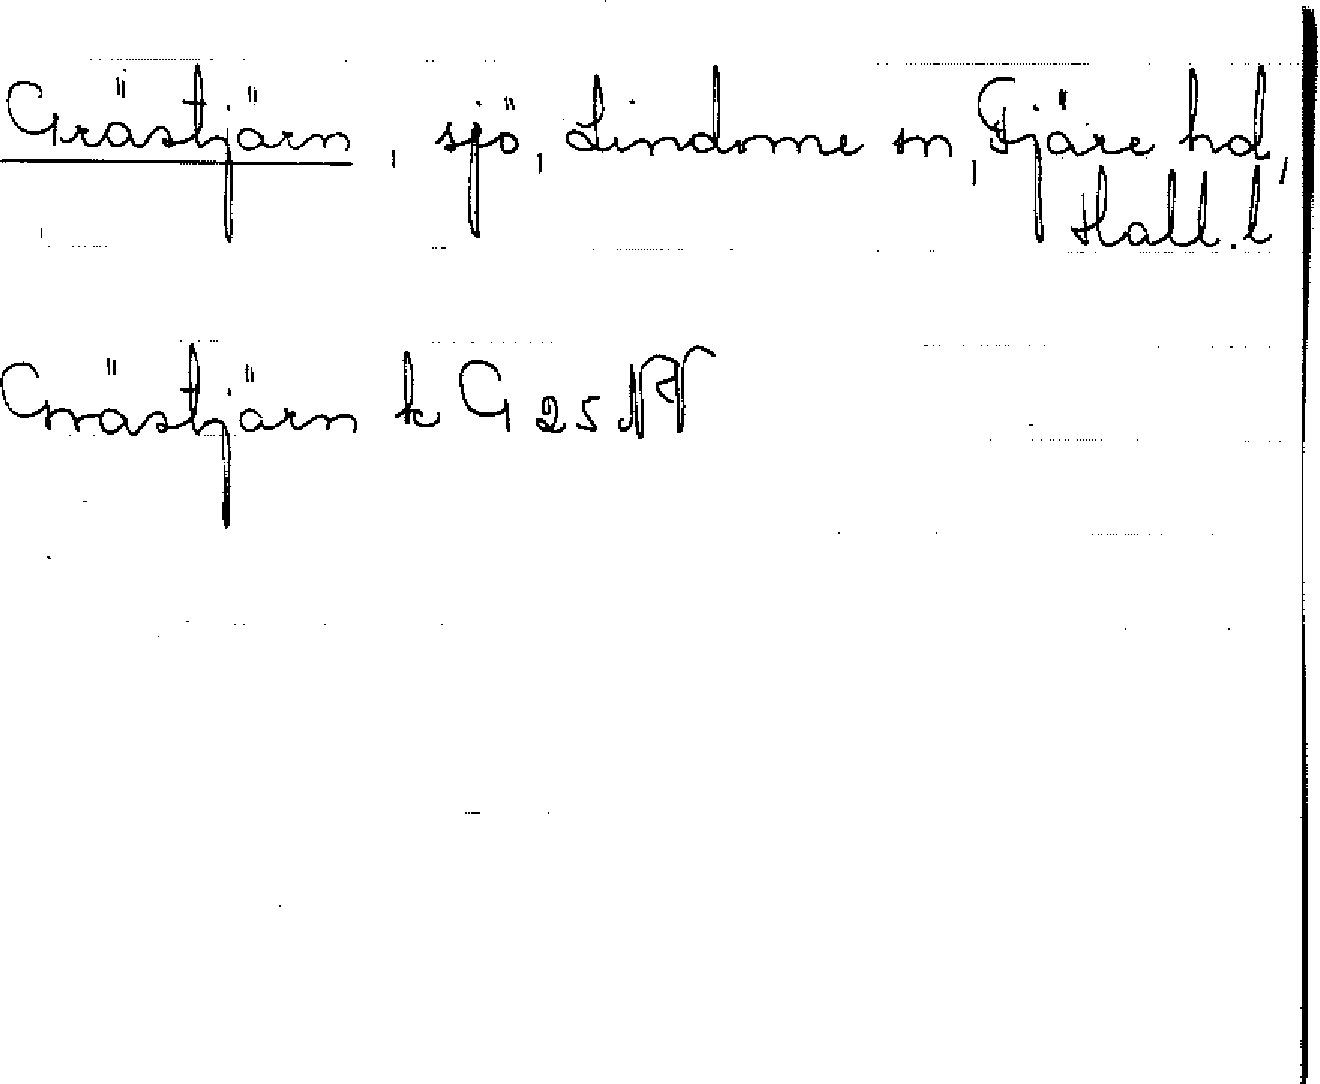 Grästjärn, sjö, Lindome sn, Fjäre hd,
Hall. l
Grästjärn k G 25 NV